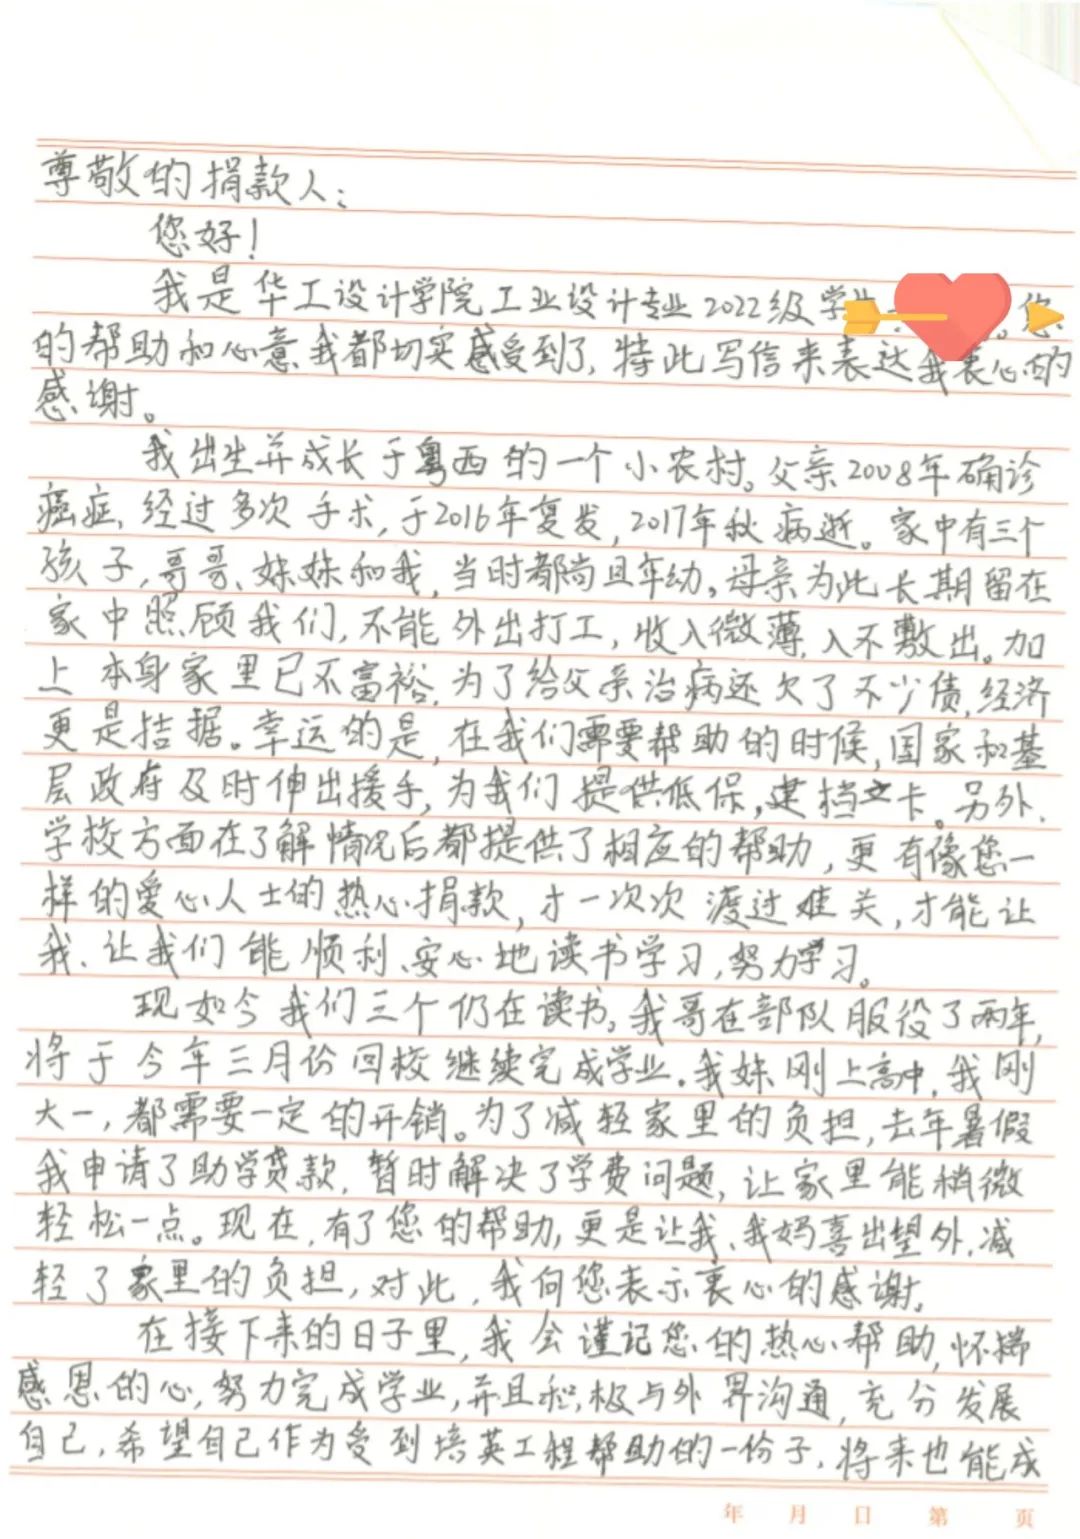 尊敬的捐款人：
您好！
我是华工设计学院工业设计专业2022级学 。您
的帮助和心意我都切实感受到了，特此写信来表达我衷心的
感谢。
我出生并成长于粤西的一个小农村。父亲2008年确诊
癌症，经过多次手术，于2016年复发，2017年秋病逝。家中有三个
孩子，哥哥、妹妹和我，当时都尚且年幼。母亲为此长期留在
家中照顾我们，不能外出打工，收入微薄，入不敷出。加
上本身家里已不富裕，为了给父亲治病还欠了不少债，经济
更是拮据。幸运的是，在我们需要帮助的时候，国家和基
层政府及时伸出援手，为我们提供低保，建档立卡。另外，
学校方面在了解情况后都提供了相应的帮助，更有像您一
样的爱心人士的热心捐款，才一次次渡过难关，才能让
我、让我们能顺利、安心地读书学习，努力学习。
现如今我们三个仍在读书。我哥在部队服役了两年，
将于今年三月份回校继续完成学业。我妹刚上高中，我刚
大一，都需要一定的开销。为了减轻家里的负担，去年暑假
我申请了助学贷款，暂时解决了学费问题，让家里能稍微
轻松一点。现在，有了您的帮助，更是让我、我妈喜出望外，减
轻了家里的负担，对此，我向您表示衷心的感谢。
在接下来的日子里，我会谨记您的热心帮助，怀揣
感恩的心，努力完成学业，并且积极与外界沟通，充分发展
自己，希望自己作为受到培英工程帮助的一份子，将来也能成
年 月 日 第 页